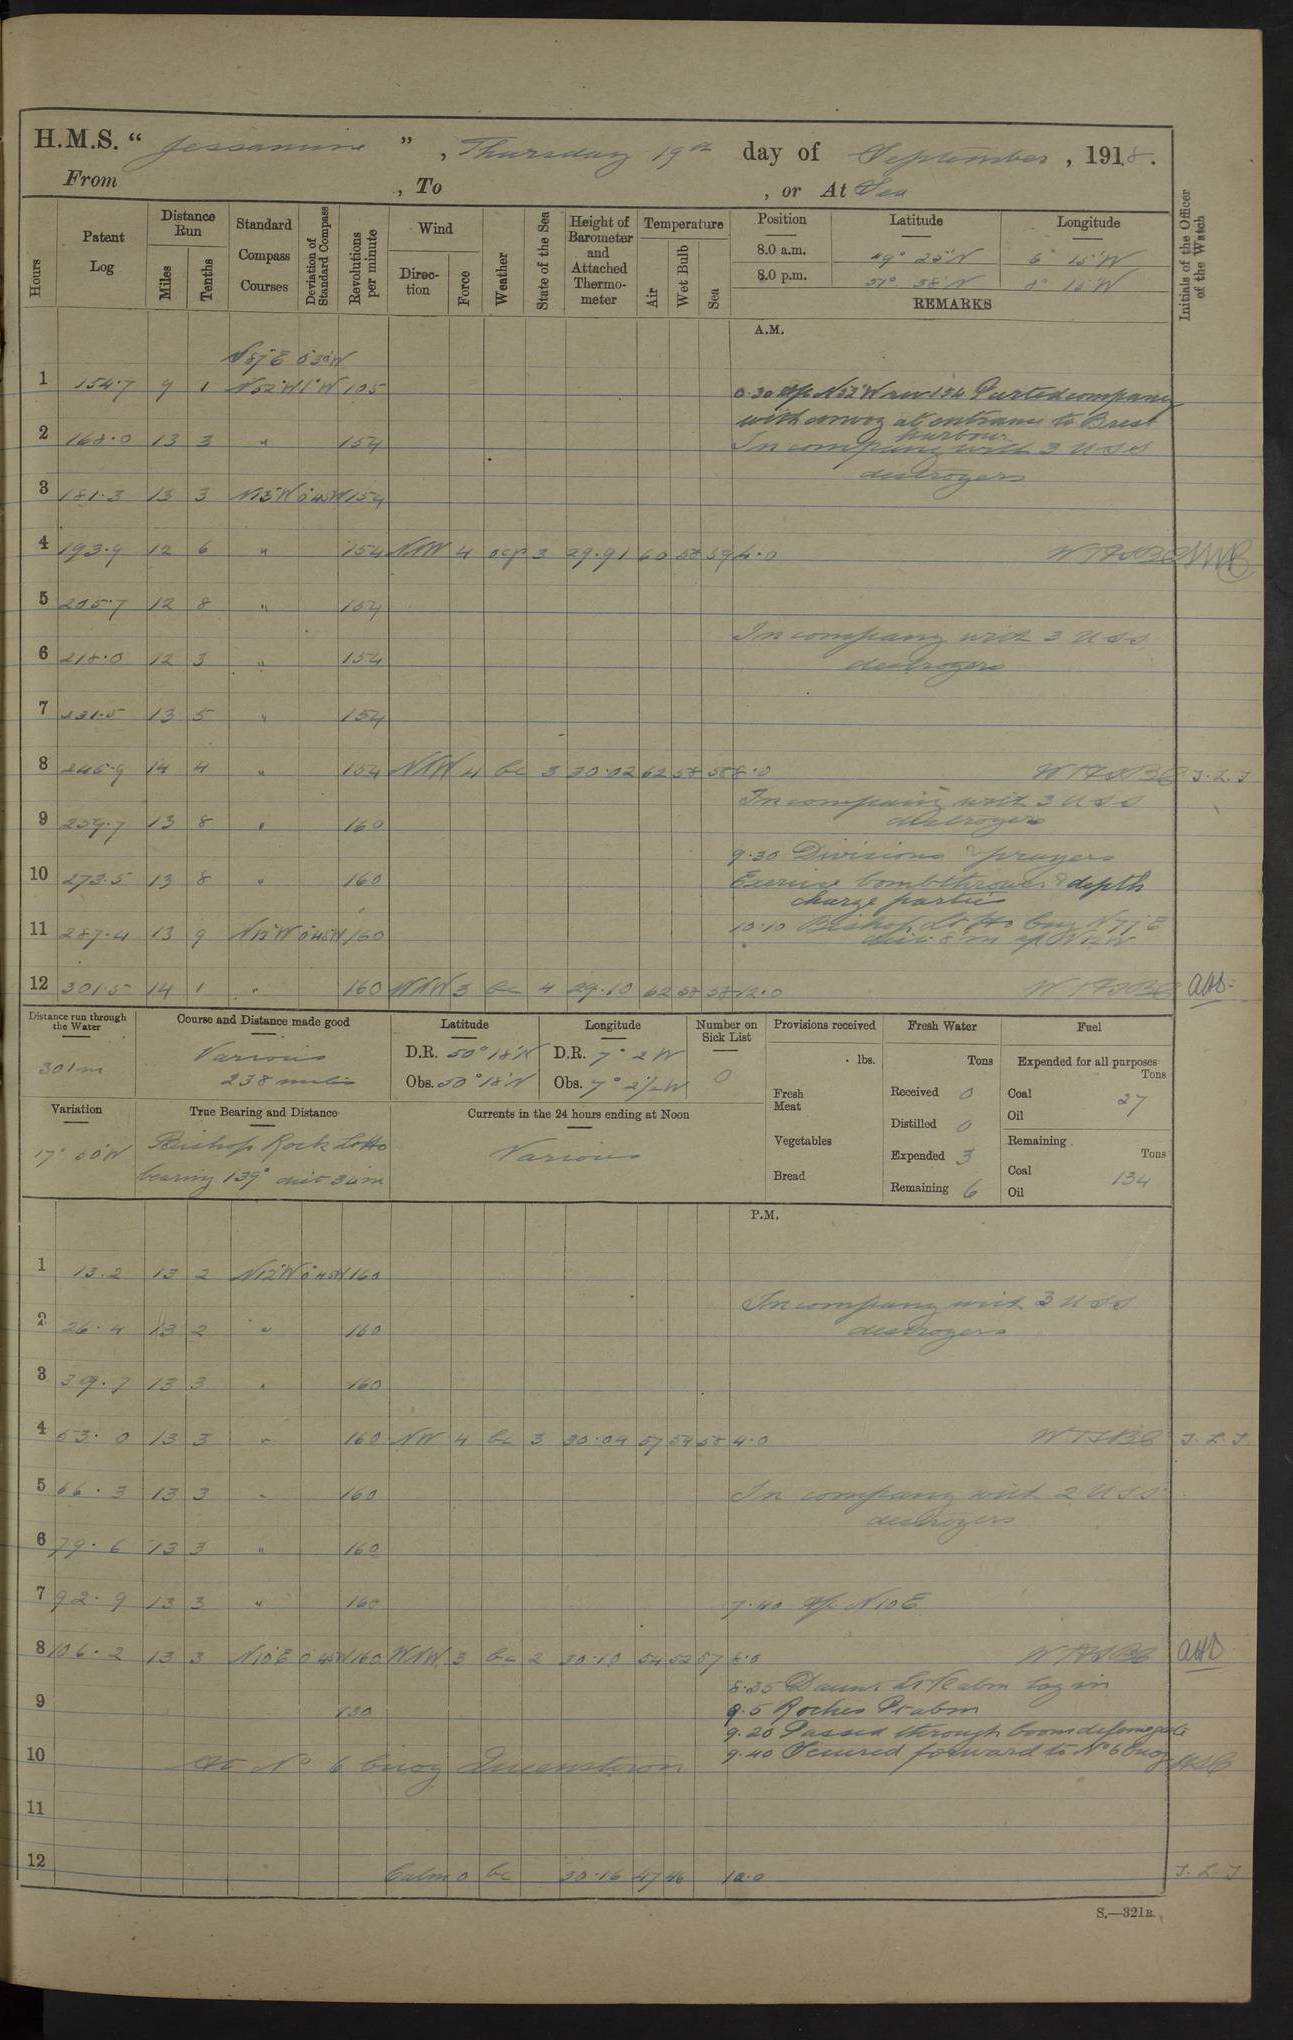 H.M.S. “ Jessamine ” , Thursday 19th day of September , 1918.
From , To , or At Sea
Hours
Patent Log
Distance Run
Miles
Tenths
Standard Compass Courses
Deviation of Standard Compass
Revolutions per minute
Wind
Direction
Force
Weather
State of the Sea
Height of Barometer and Attached Thermometer
Temperature
Air
Wet Bulb
Sea
Position Latitude Longitude
8.0 a.m. 49° 25'N 6° 15'W
8.0 p.m. 51° 38'N 8° 15'W
REMARKS
Initials of the Officer of the Watch
A.M.
1 154.7 9 1 N52°W 1°W 105
0.30 a/c N52°W rev 154 Parted company
with convoy at entrance to Brest
harbour
2 168.0 13 3 " 154 In company with 3 USS
destroyers
3 181.3 13 3 N13°W 0°45W 154
4 193.9 12 6 " 154 NNW 4 ocp 3 29.91 60 58 59 4.0
5 205.7 12 8 " 154
In company with 3 USS
6 218.0 12 3 " 154 destroyers
7 231.5 13 5 " 154
8 245.9 14 4 " 154 NNW 4 bc 3 30.02 62 58 58 8.0 J.L.J
In company with 3 USS
9 259.7 13 8 " 160 destroyers
9.30 Divisions & prayers
10 273.5 13 8 " 160 Exercise bombthrower & depth
charge parties
11 287.4 13 9 N12°W 0°45W 160 10.10 Bishop Lt Ho bng N77°E
dist 8'm a/c N12W
12 301.5 14 1 " 160 WNW 3 bc 4 29.10 62 58 58 12.0
Distance run through the Water
301m
Course and Distance made good
Various
238 miles
Latitude
D.R. 50° 18'N
Obs. 50° 18'N
Longitude
D.R. 7° 2W
Obs. 7° 2½W
Number on Sick List
0
Provisions received
lbs.
Fresh Meat
Vegetables
Bread
Fresh Water
Tons
Received 0
Distilled 0
Expended 3
Remaining 6
Fuel
Expended for all purposes
Tons
Coal 27
Oil
Remaining
Tons
Coal 134
Oil
Variation
17° 00'W
True Bearing and Distance
Bishop Rock Lt Ho
bearing 139° dist 34m
Currents in the 24 hours ending at Noon
Various
P.M.
1 13.2 13 2 N12°W 0°45W 160
In company with 3 USS
2 26.4 13 2 " 160 destroyers
3 39.7 13 3 " 160
4 53.0 13 3 " 160 NW 4 bc 3 30.09 57 54 58 4.0 J.L.J.
5 66.3 13 3 " 160 In company with 2 USS
destroyers
6 79.6 13 3 " 160
7 92.9 13 3 " 160 7.40 a/c N10E
8 106.2 13 3 N10°E 0°45W 160 WNW 3 bc 2 30.10 54 52 57 8.0
8.35 Daunt Lt V abm log in
9 130 9.5 Roches Pt abm
9.20 Passed through boom defence gate
10 At No 6 buoy Queenstown 9.40 Secured forward to No 6 buoy
11
12 Calm 0 bc 30.16 47 46 12.0 J.L.J
S.—321B.